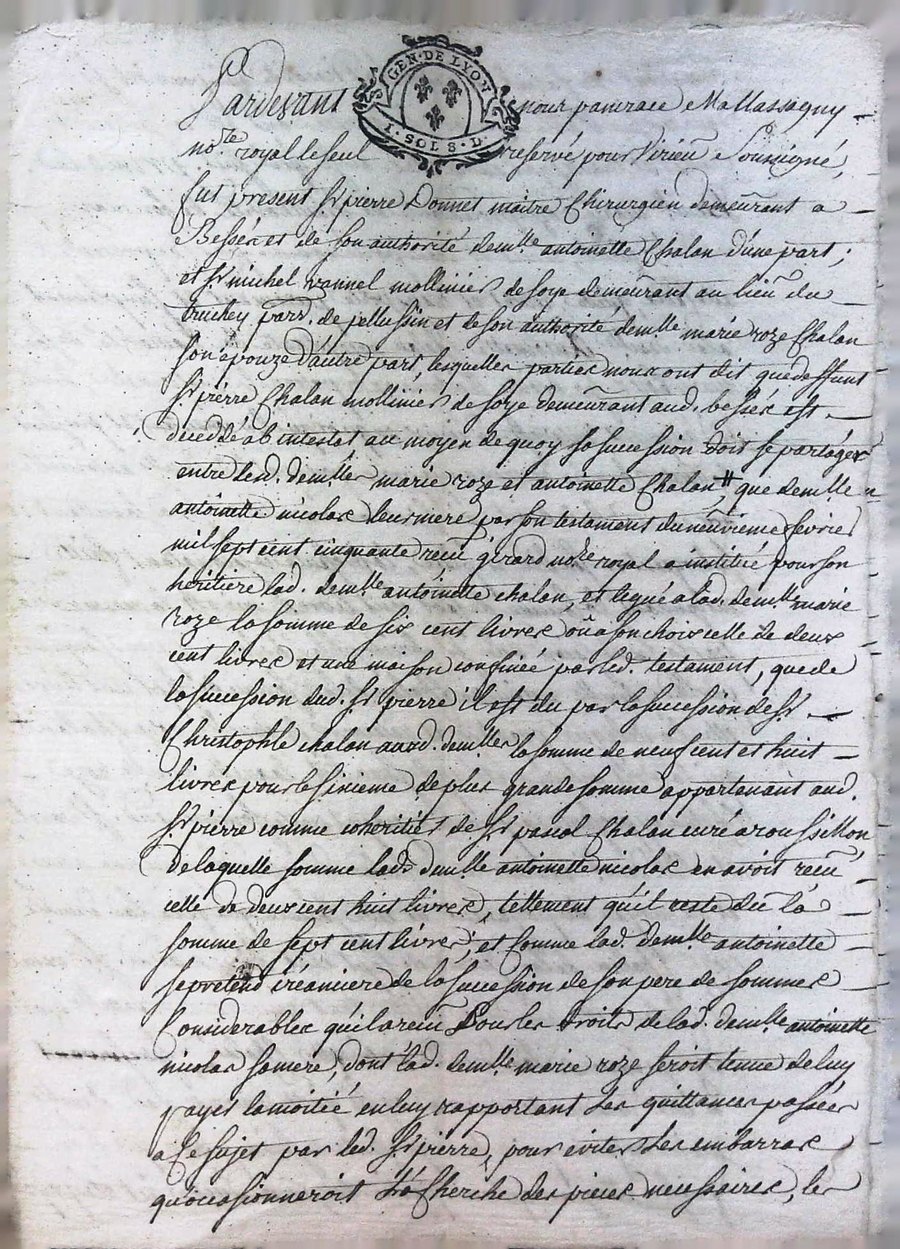 GEN·DE LYON
1·SOL 8·D
Pardevant nous pancrace Mallassagny
no.re royal le seul reservé pour Virieu Soussigné,
fut present Sr pierre Donnet maitre Chirurgien demeurant a
Bessée et de son authorité demlle antoinette Chalan d'une part;
et Sr michel vannel mollinier de soye demeurant au lieu du
truchey parr. de pellussin et de son authorité demlle marie roze Chalan
son epouze d'autre part, lesquelles parties nous ont dit que deffunt
Sr pierre Chalan mollinier de soye demeurant aud. bessée est
decedé ab intestat au moyen de quoy sa succession doit se partager
entre lesd. demlles marie roze et antoinette Chalan #, que demlle
antoinette nicolas leur mere par son testament du neuvieme fevrier
mil sept cent cinquante recu girard no.re royal a institué pour son
heritiere lad. demlle antoinette chalan, et legué a lad. demlle marie
roze la somme de six cent livres ou a son choix celle de deux
cent livres et une maison confinée par led. testament, que de
la succession dud. Sr pierre il est du par la succession de Sr
Christophle chalan auxd. demlles la somme de neuf cent et huit
livres pour le sixieme de plus grande somme appartenant aud.
Sr pierre comme coheritier de Sr pascal Chalan curé a roussillon
de laquelle somme lad. demlle antoinette nicolas en avoit recu
celle de deux cent huit livres, tellement qu'il reste du la
somme de sept cent livres; et comme lad. demlle antoinette
se pretend créanciere de la succession de son pere de sommes
Considerables qu'il a recu Pour les droits de lad. demlle antoinette
nicolas sa mere, dont lad. demlle marie roze seroit tenue de luy
payer la moitié en luy rapportant les quittances passées
a ce sujet par led. Sr pierre, pour eviter les embarras
qu'occasionneroit la Cherche des pieces necessaires, les